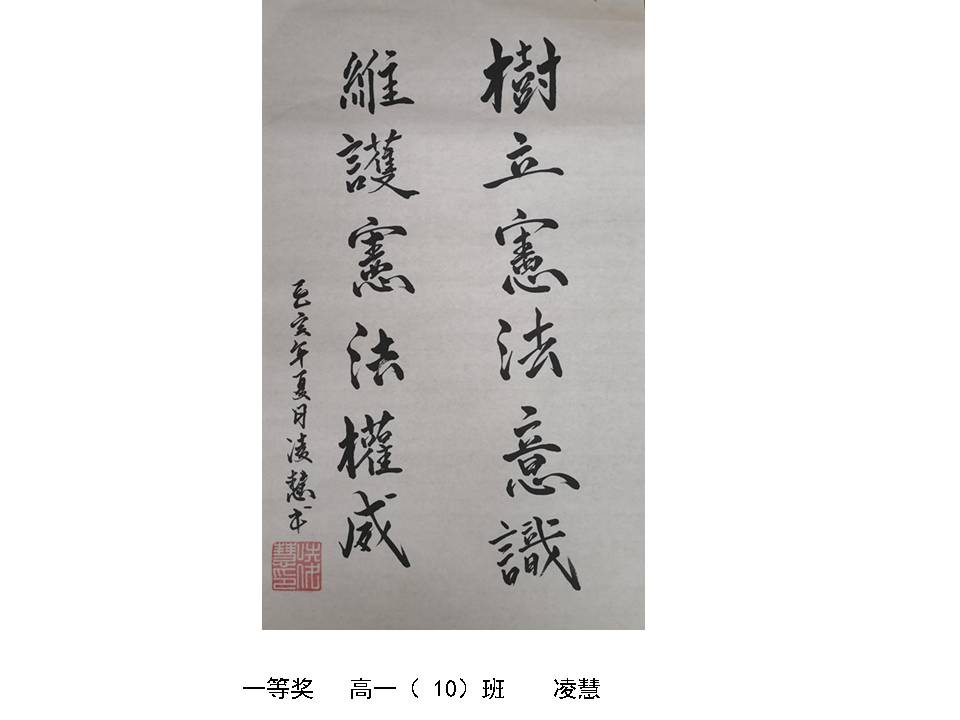 樹立憲法意識
維護憲法權威
己亥年夏日凌慧书
一等奖 高一（ 10）班 凌慧